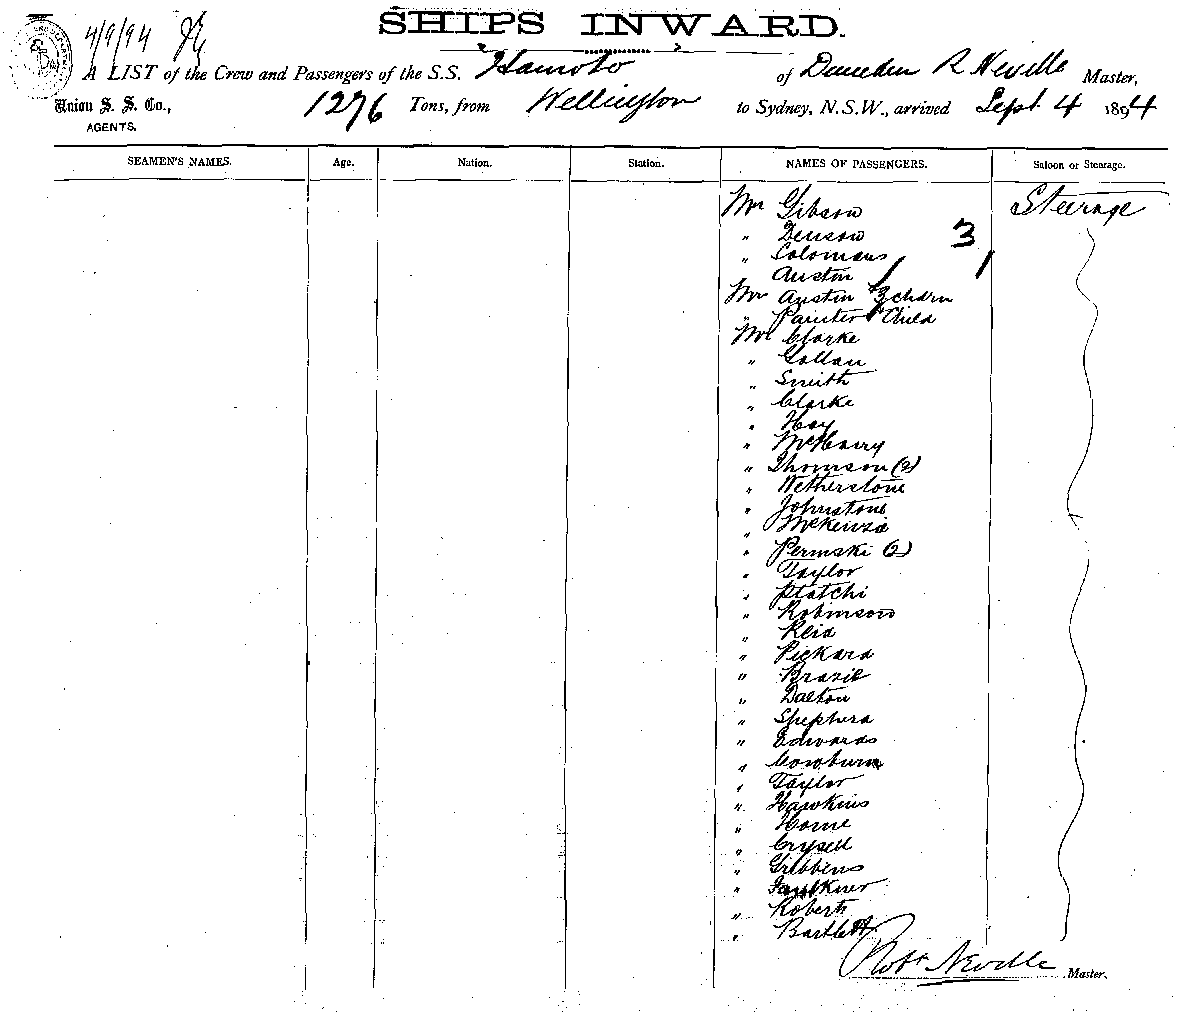 SHIPS INWARD.
4/9/94
A LIST of the Crew and Passengers of the S.S. Hauroto of Dunedin R Neville Master,
Union S. S. Co., AGENTS. 1276 Tons, from Wellington to Sydney, N.S.W., arrived Sept. 4 1894
SEAMEN'S NAMES. Age. Nation. Station. NAMES OF PASSENGERS. Saloon or Steerage.
Mr Gibson Steerage
" Denson 3
" Colomans
" Austin 1 1
Mrs Austin & 3 chdrn
" Painter & Child
Mr Clarke
" Gollan
" Smith
" Clarke
" Hay
" McHarry
" Thomson (2)
" Wetherstone
" Johnstone
" McKenzie
" Permski (2)
" Taylor
" Platchi
" Robinson
" Reid
" Pickard
" Brazil
" Dalton
" Shepherd
" Edwards
" Cowburn
" Taylor
" Hawkins
" Horne
" Crysell
" Gribbens
" Faulkner
" Roberts
" Bartlett
Robt Neville Master.